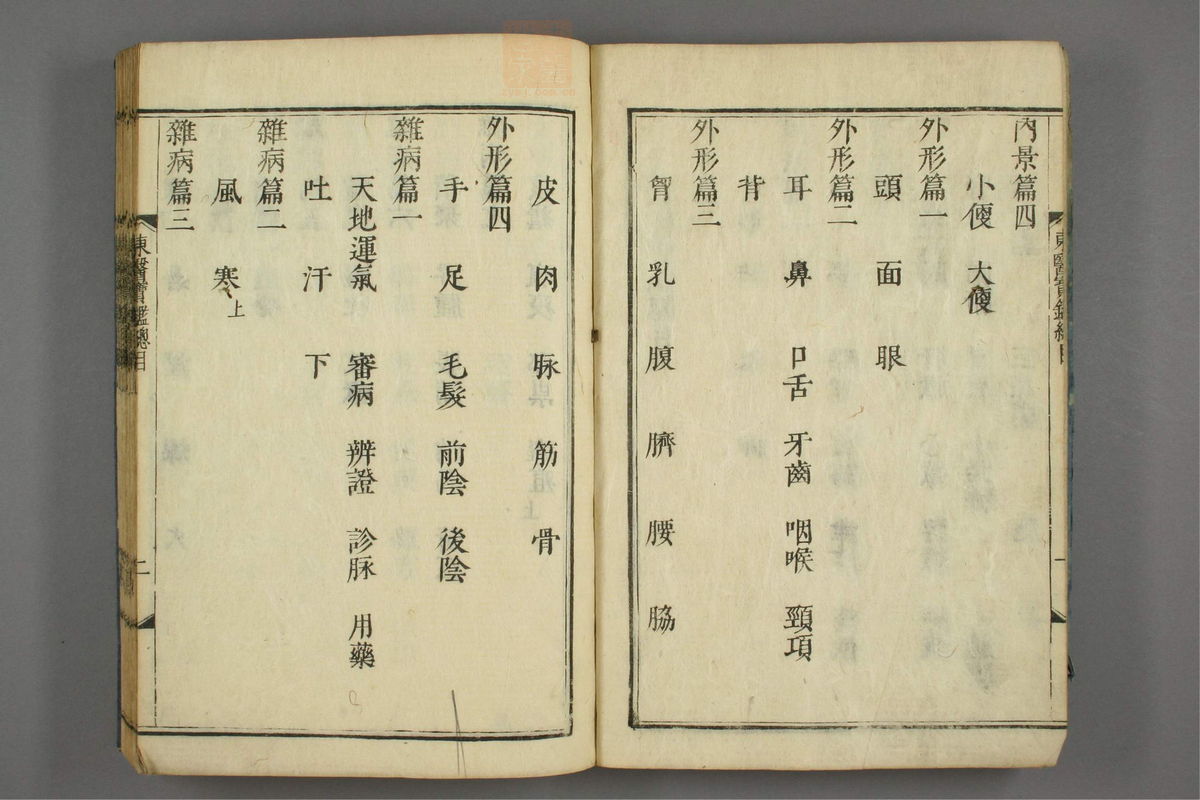 內景篇四
小便 大便
外形篇一
頭 面 眼
外形篇二
耳 鼻 口舌 牙齒 咽喉 頸項
背
外形篇三
胷 乳 腹 臍 腰 脇
皮 肉 脉 筋 骨
外形篇四
手 足 毛髮 前陰 後陰
雜病篇一
天地運氣 審病 辨證 診脉 用藥
吐 汗 下
雜病篇二
風 寒上
雜病篇三
東醫寶鑑總目 二